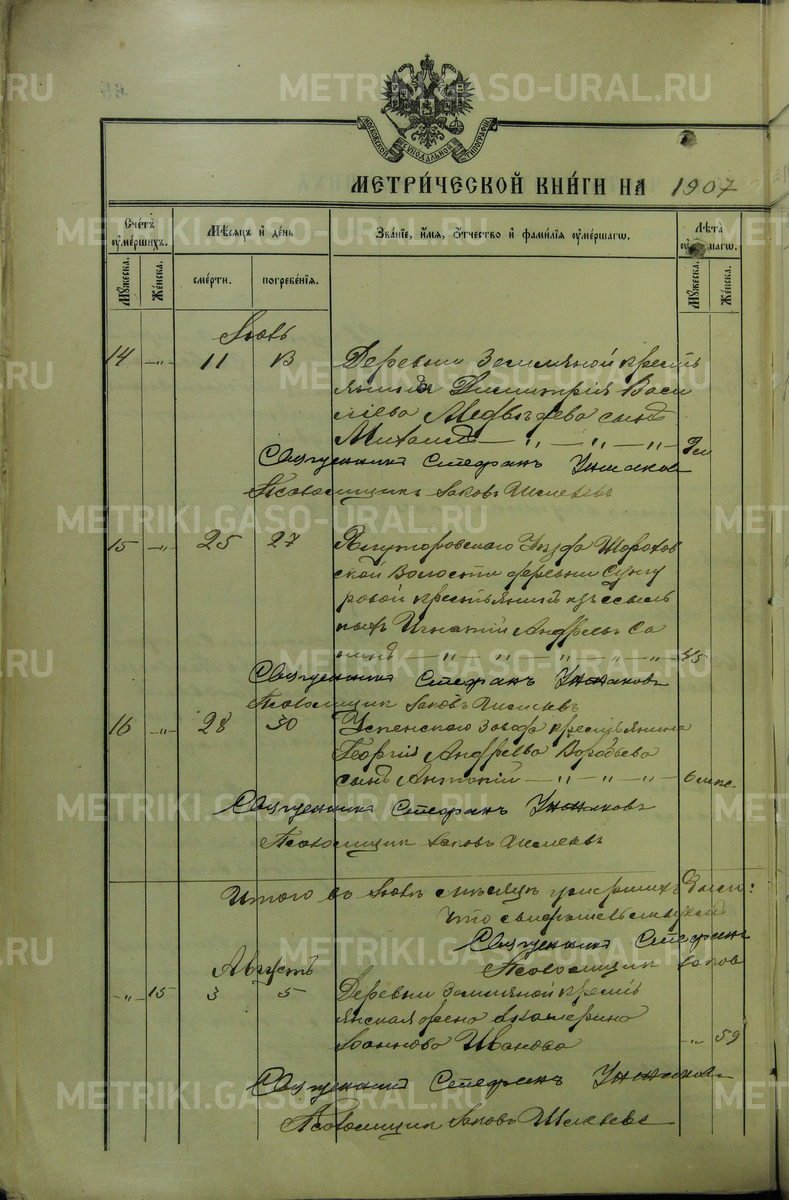 МЕТРИ́ЧЕСКОЙ КНИ́ГИ НА 1907
Сче́тъ ᲂу҆ме́ршихъ.
Мѣ́сяцъ и҆ де́нь
Зва́нїе, и҆́мѧ, ѻ҆́тчество и҆ фами́лїѧ ᲂу҆ме́ршагѡ.
Лѣ́та
Мꙋ́жеска.
Же́нска.
сме́рти.
погребе́нїѧ.
Мꙋ́жеска.
Же́нска.
Іюль
14 —"— 11 13 Деревни Земляной кресть
янина Димитрія Васи
ліева Медвѣдева сынъ
Михаилъ — " — " — "
Священникъ Стефанъ
Псаломщикъ Іаковъ
15 —"— 25 27 Ялуторовскаго Уѣзда Шорохов
ской Волости деревни Сунгу
ровой крестьянинъ изъ ссыль
ныхъ Игнатій Андреевъ Са
нинъ — " — " — " — " — 45
Священникъ Стефанъ
Псаломщикъ Іаковъ
16 —"— 28 30 Успенскаго Завода крестьянина
Георгія Андреева Воробьева
сынъ Антоній — " — " — " — 6 мѣс.
Священникъ Стефанъ
Псаломщикъ Іаковъ
Итого въ Іюлѣ мѣсяцѣ умершихъ
Что свидѣтельствуемъ
Священникъ Стефанъ
Псаломщикъ Іаковъ
Августъ
—"— 15 3 5 Деревни Земляной кресть
янская жена Екатерина
Іоаннова Иванова —"— 59
Священникъ Стефанъ
Псаломщикъ Іаковъ
METRIKI.GASO-URAL.RU